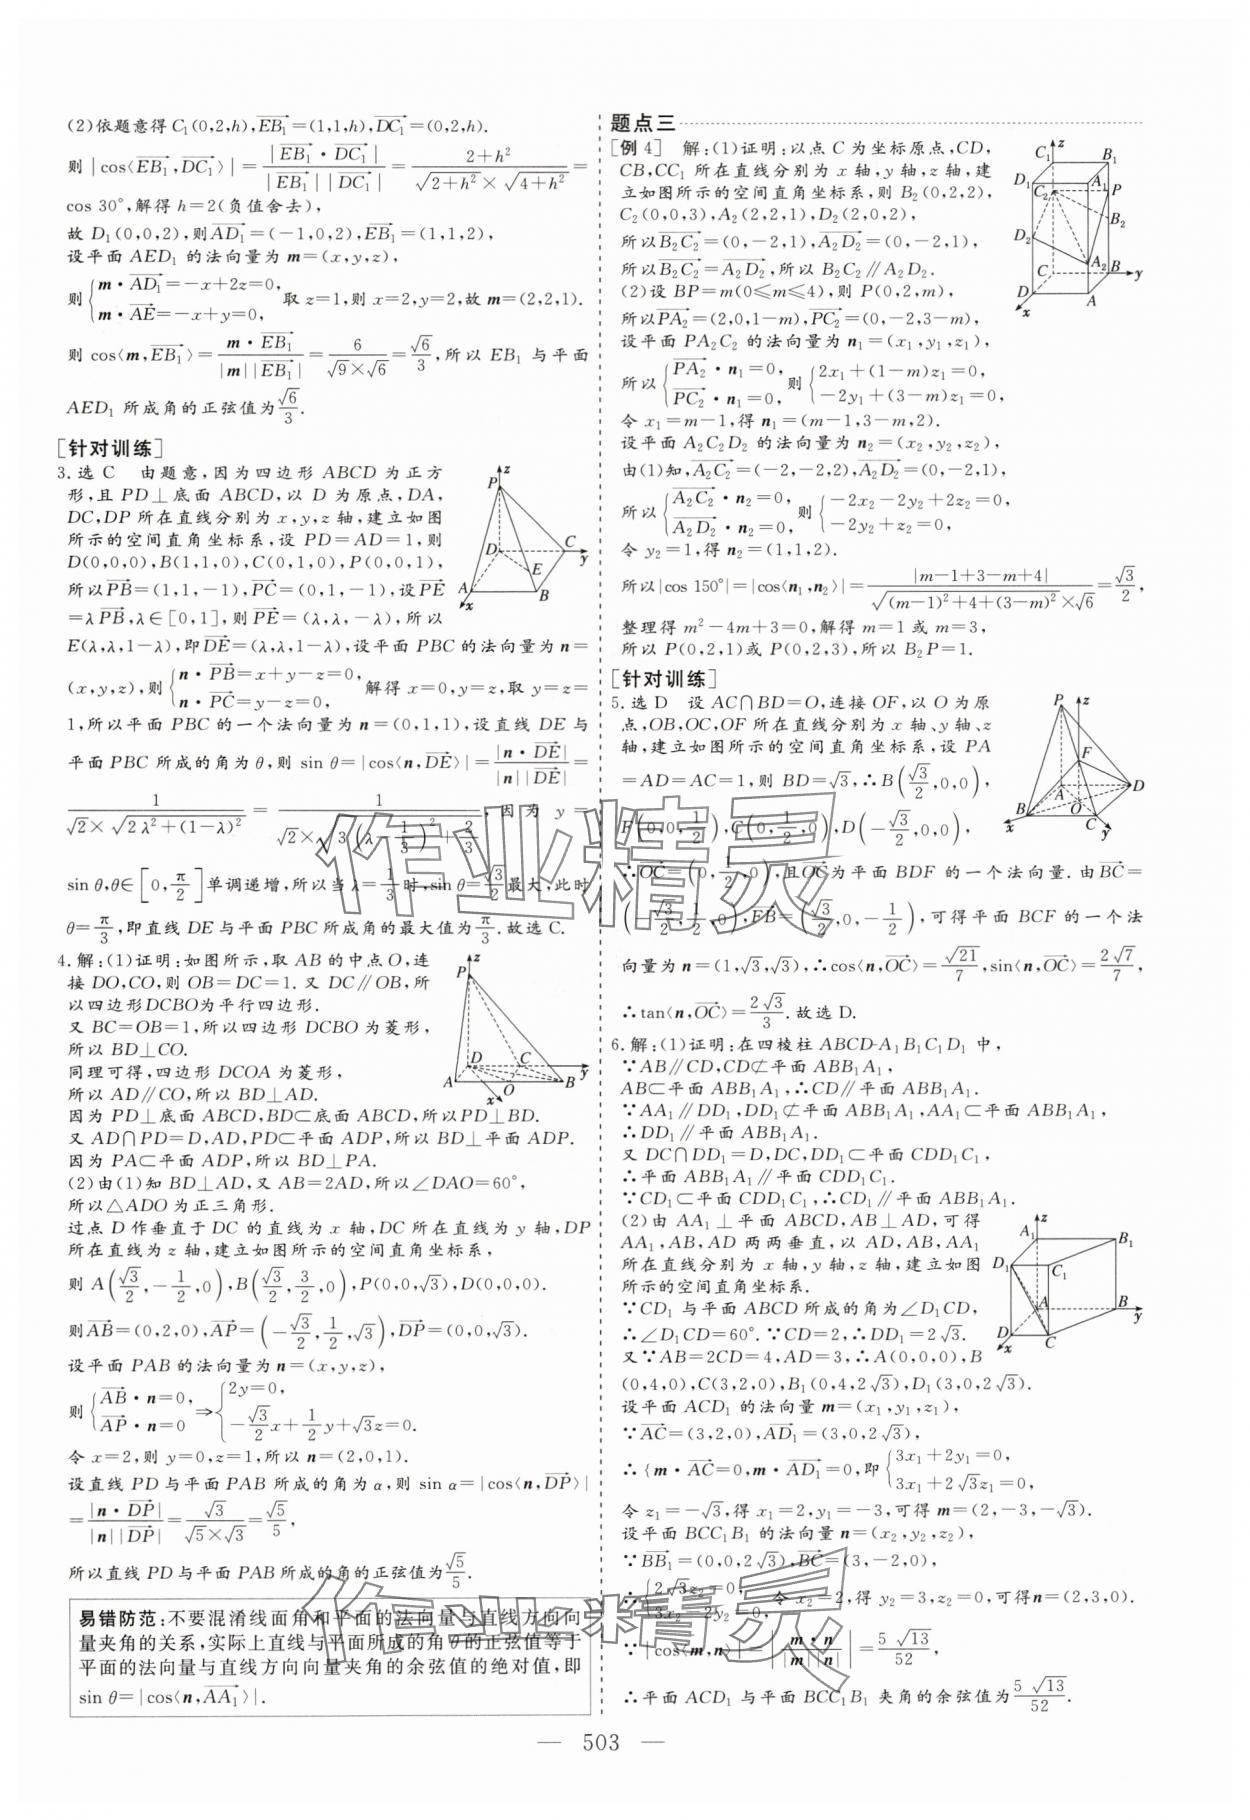 (2)依题意得 C₁(0,2,h),EB₁→=(1,1,h),DC₁→=(0,2,h).
则|cos⟨EB₁→,DC₁→⟩|=|EB₁→·DC₁→|/(|EB₁→||DC₁→|)=(2+h²)/(√(2+h²)×√(4+h²))=
cos 30°,解得 h=2(负值舍去),
故 D₁(0,0,2),则AD₁→=(-1,0,2),EB₁→=(1,1,2),
设平面 AED₁ 的法向量为 m=(x,y,z),
则{m·AD₁→=-x+2z=0, m·AE→=-x+y=0, 取 z=1,则 x=2,y=2,故 m=(2,2,1).
则 cos⟨m,EB₁→⟩=m·EB₁→/(|m||EB₁→|)=6/(√9×√6)=√6/3,所以 EB₁ 与平面
AED₁ 所成角的正弦值为√6/3.
[针对训练]
3.选 C 由题意,因为四边形 ABCD 为正方
形,且 PD⊥底面 ABCD,以 D 为原点,DA,
DC,DP 所在直线分别为 x,y,z 轴,建立如图
所示的空间直角坐标系,设 PD=AD=1,则
D(0,0,0),B(1,1,0),C(0,1,0),P(0,0,1),
所以PB→=(1,1,-1),PC→=(0,1,-1),设PE→
=λPB→,λ∈[0,1],则PE→=(λ,λ,-λ),所以
E(λ,λ,1-λ),即DE→=(λ,λ,1-λ),设平面 PBC 的法向量为 n=
(x,y,z),则{n·PB→=x+y-z=0, n·PC→=y-z=0, 解得 x=0,y=z,取 y=z=
1,所以平面 PBC 的一个法向量为 n=(0,1,1),设直线 DE 与
平面 PBC 所成的角为 θ,则 sin θ=|cos⟨n,DE→⟩|=|n·DE→|/(|n||DE→|)=
1/(√2×√(2λ²+(1-λ)²))=1/(√2×√(3(λ-1/3)²+2/3)),因为 y=
sin θ,θ∈[0,π/2]单调递增,所以当 λ=1/3时,sin θ=√3/2最大,此时
θ=π/3,即直线 DE 与平面 PBC 所成角的最大值为π/3.故选 C.
4.解:(1)证明:如图所示,取 AB 的中点 O,连
接 DO,CO,则 OB=DC=1.又 DC∥OB,所
以四边形DCBO为平行四边形.
又 BC=OB=1,所以四边形 DCBO 为菱形,
所以 BD⊥CO.
同理可得,四边形 DCOA 为菱形,
所以 AD∥CO,所以 BD⊥AD.
因为 PD⊥底面 ABCD,BD⊂底面 ABCD,所以PD⊥BD.
又 AD∩PD=D,AD,PD⊂平面 ADP,所以 BD⊥平面 ADP.
因为 PA⊂平面 ADP,所以 BD⊥PA.
(2)由(1)知 BD⊥AD,又 AB=2AD,所以∠DAO=60°,
所以△ADO 为正三角形.
过点 D 作垂直于 DC 的直线为 x 轴,DC 所在直线为 y 轴,DP
所在直线为 z 轴,建立如图所示的空间直角坐标系,
则 A(√3/2,-1/2,0),B(√3/2,3/2,0),P(0,0,√3),D(0,0,0).
则AB→=(0,2,0),AP→=(-√3/2,1/2,√3),DP→=(0,0,√3).
设平面 PAB 的法向量为 n=(x,y,z),
则{AB→·n=0, AP→·n=0 ⇒{2y=0, -√3/2x+1/2y+√3z=0.
令 x=2,则 y=0,z=1,所以 n=(2,0,1).
设直线 PD 与平面 PAB 所成的角为 α,则 sin α=|cos⟨n,DP→⟩|
=|n·DP→|/(|n||DP→|)=√3/(√5×√3)=√5/5,
所以直线 PD 与平面 PAB 所成的角的正弦值为√5/5.
易错防范:不要混淆线面角和平面的法向量与直线方向向
量夹角的关系,实际上直线与平面所成的角 θ 的正弦值等于
平面的法向量与直线方向向量夹角的余弦值的绝对值,即
sin θ=|cos⟨n,AA₁→⟩|.
题点三
[例 4] 解:(1)证明:以点 C 为坐标原点,CD,
CB,CC₁ 所在直线分别为 x 轴,y 轴,z 轴,建
立如图所示的空间直角坐标系,则 B₂(0,2,2),
C₂(0,0,3),A₂(2,2,1),D₂(2,0,2),
所以B₂C₂→=(0,-2,1),A₂D₂→=(0,-2,1),
所以B₂C₂→=A₂D₂→,所以 B₂C₂∥A₂D₂.
(2)设 BP=m(0≤m≤4),则 P(0,2,m),
所以PA₂→=(2,0,1-m),PC₂→=(0,-2,3-m),
设平面 PA₂C₂ 的法向量为 n₁=(x₁,y₁,z₁),
所以{PA₂→·n₁=0, PC₂→·n₁=0, 则{2x₁+(1-m)z₁=0, -2y₁+(3-m)z₁=0,
令 x₁=m-1,得 n₁=(m-1,3-m,2).
设平面 A₂C₂D₂ 的法向量为 n₂=(x₂,y₂,z₂),
由(1)知,A₂C₂→=(-2,-2,2),A₂D₂→=(0,-2,1),
所以{A₂C₂→·n₂=0, A₂D₂→·n₂=0, 则{-2x₂-2y₂+2z₂=0, -2y₂+z₂=0,
令 y₂=1,得 n₂=(1,1,2).
所以|cos 150°|=|cos⟨n₁,n₂⟩|=|m-1+3-m+4|/(√((m-1)²+4+(3-m)²)×√6)=√3/2,
整理得 m²-4m+3=0,解得 m=1 或 m=3,
所以 P(0,2,1)或 P(0,2,3),所以 B₂P=1.
[针对训练]
5.选 D 设 AC∩BD=O,连接 OF,以 O 为原
点,OB,OC,OF 所在直线分别为 x 轴、y 轴、z
轴,建立如图所示的空间直角坐标系,设 PA
=AD=AC=1,则 BD=√3,∴B(√3/2,0,0),
F(0,0,1/2),C(0,1/2,0),D(-√3/2,0,0),
∴OC→=(0,1/2,0),且OC→为平面 BDF 的一个法向量.由BC→=
(-√3/2,1/2,0),FB→=(√3/2,0,-1/2),可得平面 BCF 的一个法
向量为 n=(1,√3,√3),∴cos⟨n,OC→⟩=√21/7,sin⟨n,OC→⟩=2√7/7,
∴tan⟨n,OC→⟩=2√3/3.故选 D.
6.解:(1)证明:在四棱柱 ABCD-A₁B₁C₁D₁ 中,
∵AB∥CD,CD⊄平面 ABB₁A₁,
AB⊂平面 ABB₁A₁,∴CD∥平面 ABB₁A₁.
∵AA₁∥DD₁,DD₁⊄平面 ABB₁A₁,AA₁⊂平面 ABB₁A₁,
∴DD₁∥平面 ABB₁A₁.
又 DC∩DD₁=D,DC,DD₁⊂平面 CDD₁C₁,
∴平面 ABB₁A₁∥平面 CDD₁C₁.
∵CD₁⊂平面 CDD₁C₁,∴CD₁∥平面 ABB₁A₁.
(2)由 AA₁⊥平面 ABCD,AB⊥AD,可得
AA₁,AB,AD 两两垂直,以 AD,AB,AA₁
所在直线分别为 x 轴,y 轴,z 轴,建立如图
所示的空间直角坐标系.
∵CD₁ 与平面 ABCD 所成的角为∠D₁CD,
∴∠D₁CD=60°.∵CD=2,∴DD₁=2√3.
又∵AB=2CD=4,AD=3,∴A(0,0,0),B
(0,4,0),C(3,2,0),B₁(0,4,2√3),D₁(3,0,2√3).
设平面 ACD₁ 的法向量 m=(x₁,y₁,z₁),
∵AC→=(3,2,0),AD₁→=(3,0,2√3),
∴{m·AC→=0,m·AD₁→=0,即{3x₁+2y₁=0, 3x₁+2√3z₁=0,
令 z₁=-√3,得 x₁=2,y₁=-3,可得 m=(2,-3,-√3).
设平面 BCC₁B₁ 的法向量 n=(x₂,y₂,z₂),
∵BB₁→=(0,0,2√3),BC→=(3,-2,0),
∴{2√3z₂=0, 3x₂-2y₂=0, 令 x₂=2,得 y₂=3,z₂=0,可得n=(2,3,0).
∵|cos⟨m,n⟩|=|m·n/(|m||n|)|=5√13/52,
∴平面 ACD₁ 与平面 BCC₁B₁ 夹角的余弦值为5√13/52.
— 503 —
作业精灵
作业精灵